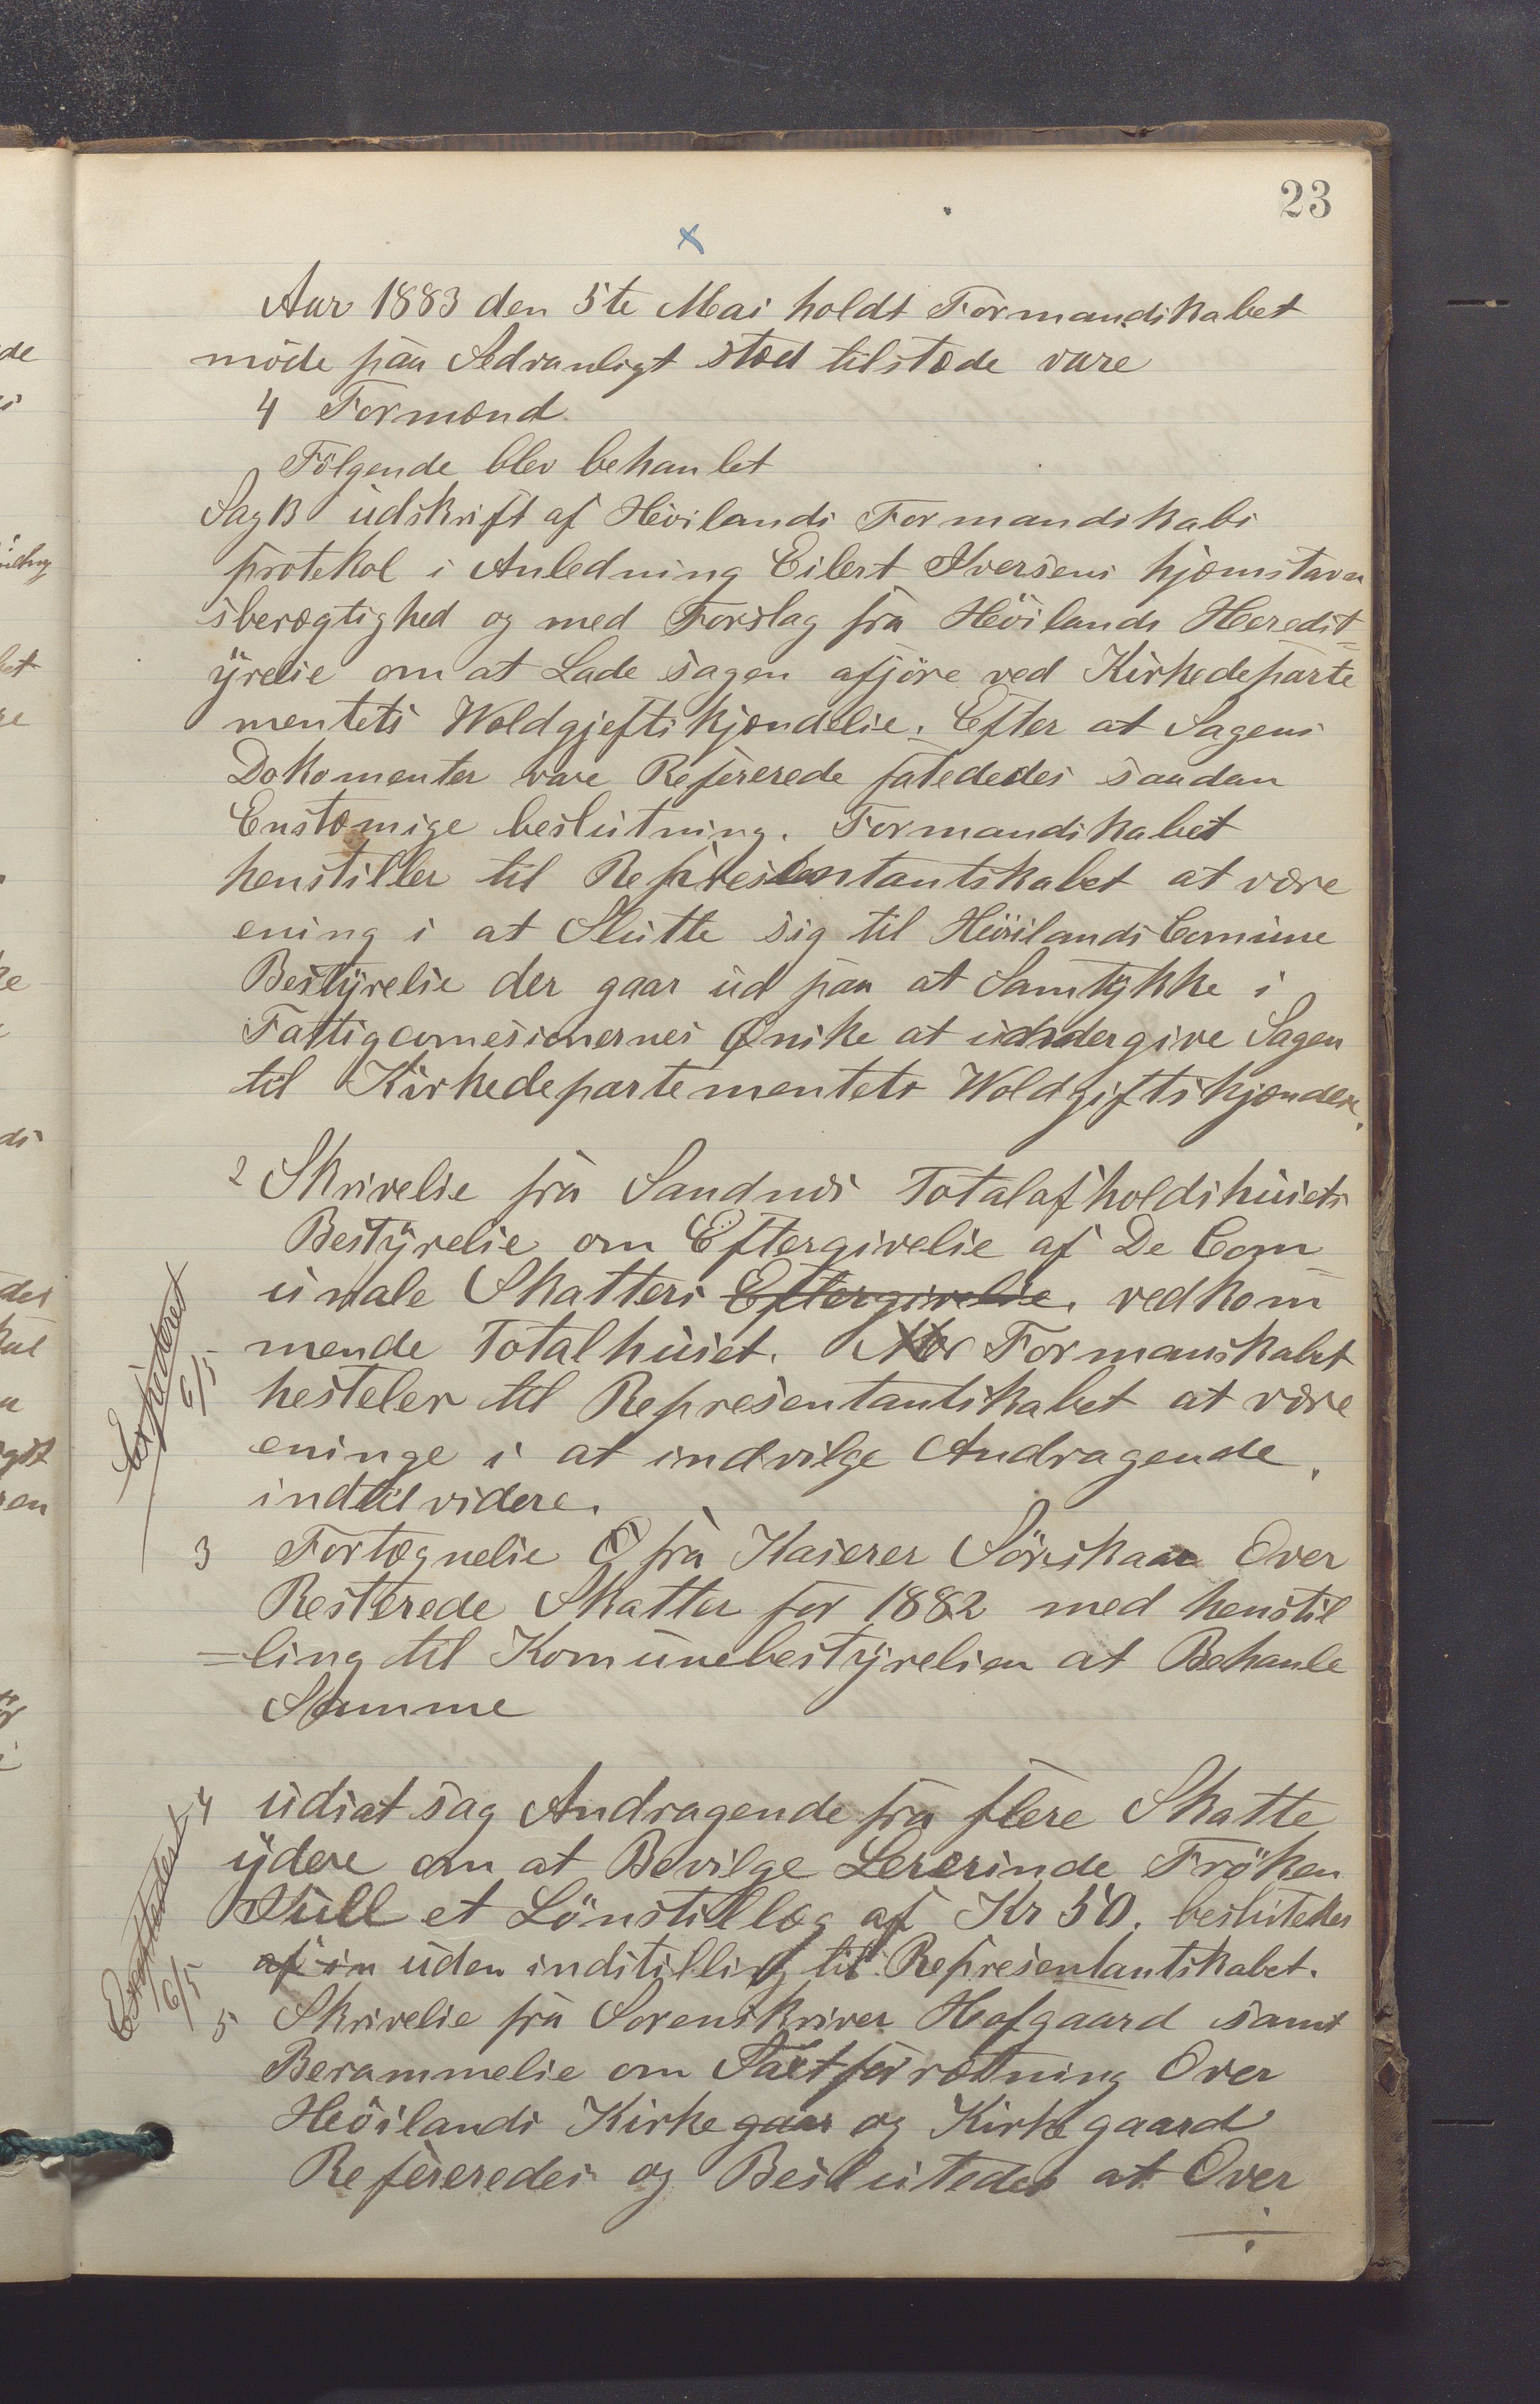 23
x
Aar 1883 den 5te Mai holdt Formandskabet
møde paa Sedvanligt stæd tilstæde vare
4 Formænd.
Følgende blev behanlet
Sag 13 udskrift af Høilands Formandskabs
protekol i Anledning Eilert Iversens hjæmstavn
sberægtighed og med Forslag fra Høilands Heredst=
yrelse om at Lade sagen afjøre ved Kirkedeparte
mentets Woldgjeftskjændelse. Efter at Sagens
Dokomenter vare Refererede fatededes saadan
Enstæmige beslutning. Formandskabet
henstiller til Representantskabet at være
ening i at Slutte sig til Høilands Comune
Bestyrelse der gaar ud paa at Samtykke i
Fattigcomesionernes Ønske at undergive Sagen
til Kirkedepartementets Woldgiftskjændelse.
2 Skrivelse fra Sandnes Totalafholdshusets
Bestyrelse om Eftergivelse af De Com=
unale Skatters Eftergivelse. vedkom
mende Totalhuset. Formanskabet
hesteler til Representantskabet at være
eninge i at indvilge Andragende.
indtil videre.
Expederet
6/5
3 Fortegnelse fra Kaserer Söreskaar Over
Resterede Skatter for 1882 med henstil
=ling til Komunebestyrelsen at Behanle
Samme
4 udsat sag Andragende fra flere Skatte
ydere om at Bevilge Lererinde Frøken
Siull et Lønstillæg af Kr 50. beslutedes
af in uden indstilling til Representantskabet.
Expederet
6/5
5 Skrivelse fra Sorenskriver Hofgaard samt
Berammelse om Taxtforretning Over
Høilands Kirke gaar og Kirkegaard
Refereredes og Beslutedes at Over
./.